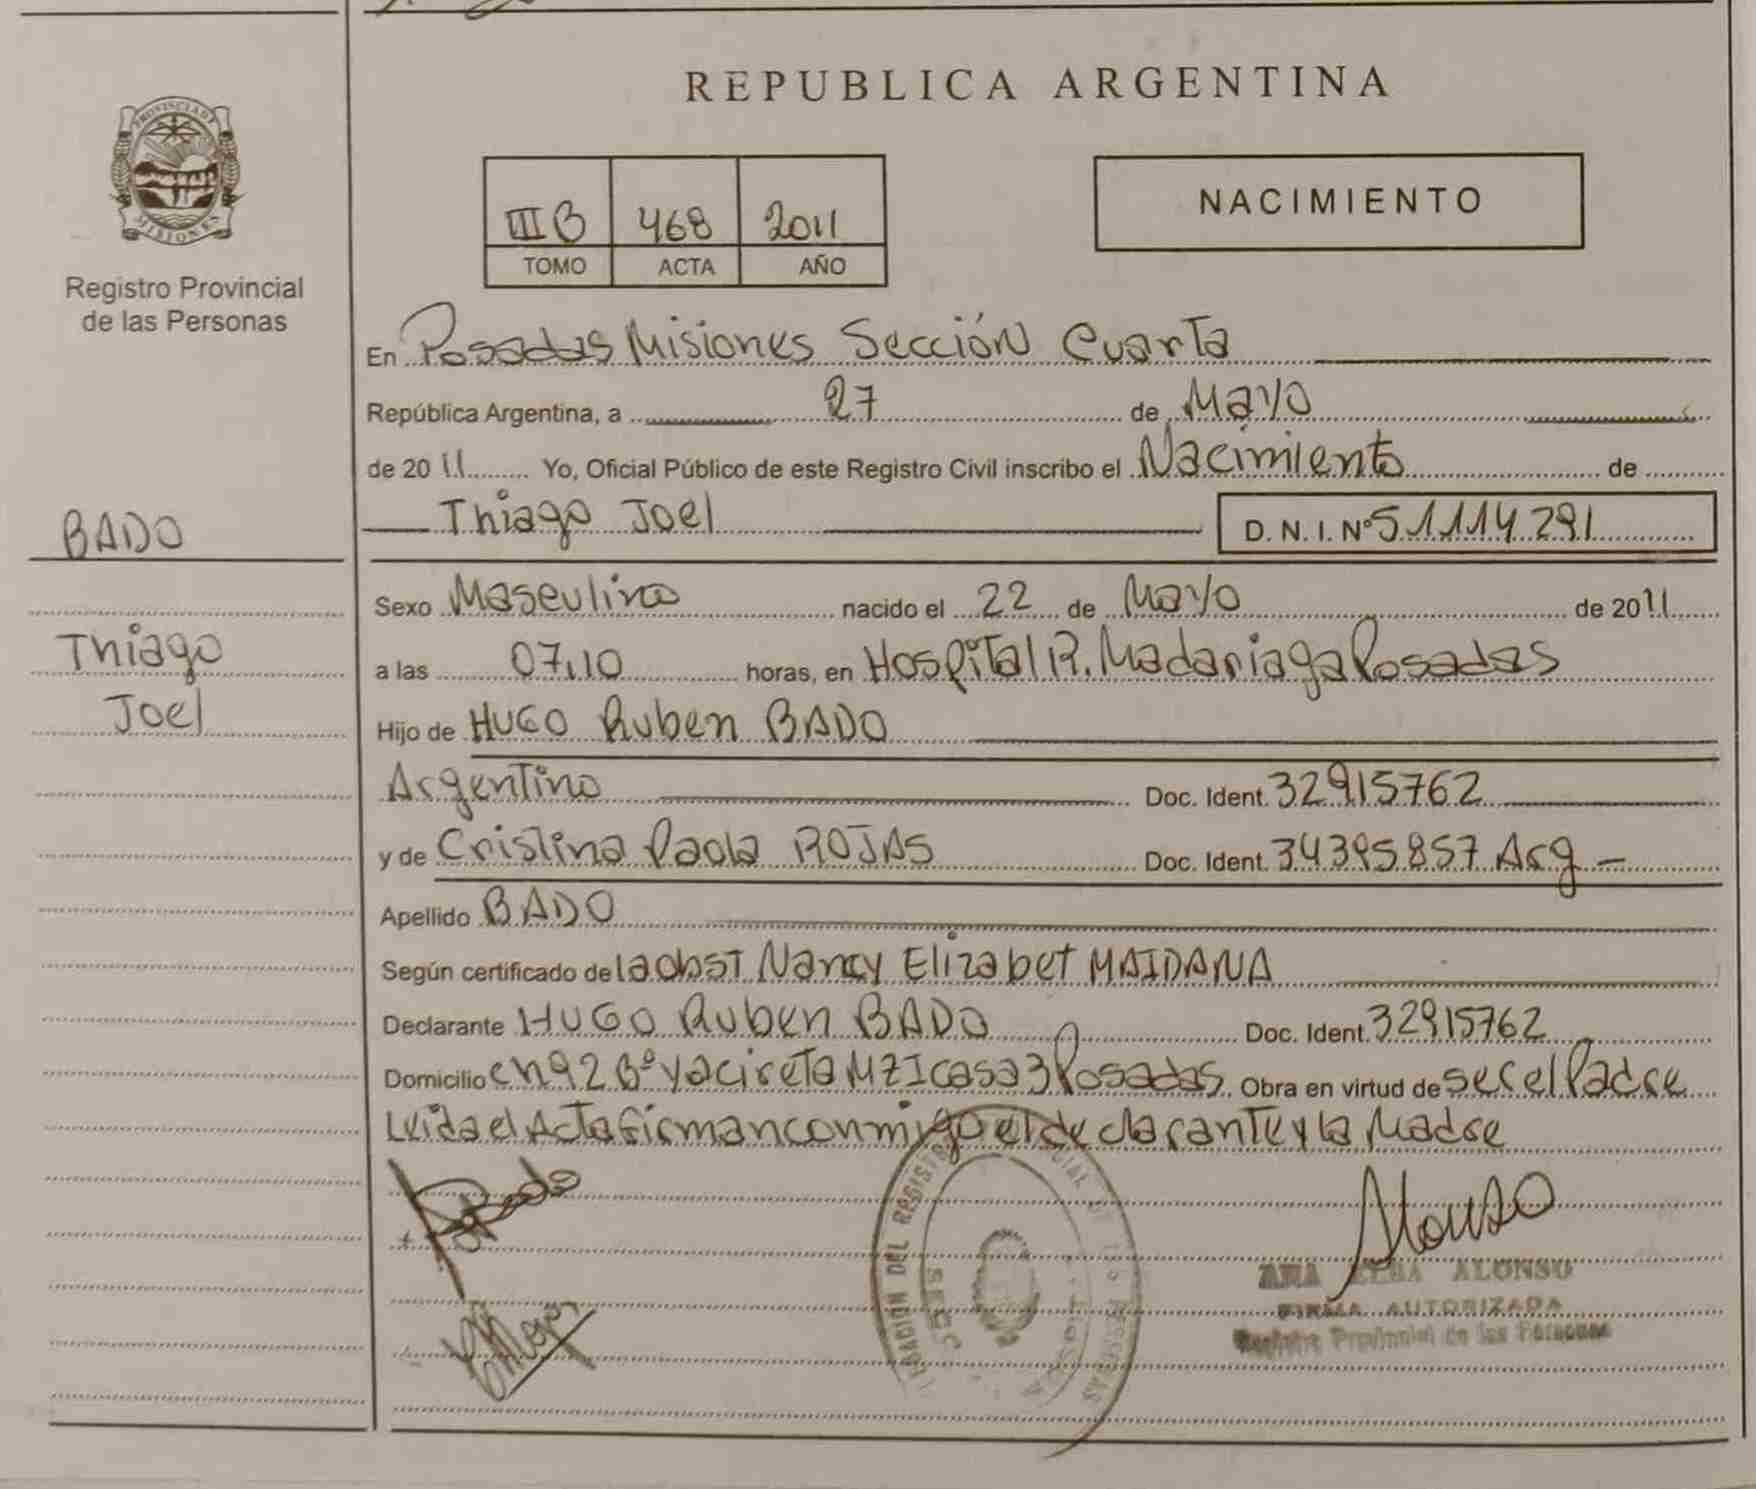 REPUBLICA ARGENTINA
PROVINCIA DE
MISIONES
Registro Provincial
de las Personas
NACIMIENTO
III B 468 2011
TOMO ACTA AÑO
En Posadas Misiones Sección Cuarta
República Argentina, a 27 de Mayo
de 2011 Yo, Oficial Público de este Registro Civil inscribo el Nacimiento de
Thiago Joel D. N. I. Nº 51114291
BADO
Thiago
Joel
Sexo Masculino nacido el 22 de Mayo de 2011
a las 07,10 horas, en Hospital R. Madariaga Posadas
Hijo de HUGO Ruben BADO
Argentino Doc. Ident. 32915762
y de Cristina Paola ROJAS Doc. Ident. 34395857 Arg
Apellido BADO
Según certificado de la obst Nancy Elizabet MAIDANA
Declarante HUGO Ruben BADO Doc. Ident. 32915762
Domicilio ch 92 Bº Yacireta MZ I casa 3 Posadas. Obra en virtud de ser el Padre
Leida el Acta firman conmigo el declarante y la Madre
ANA ALONSO
FIRMA AUTORIZADA
Registro Provincial de las Personas